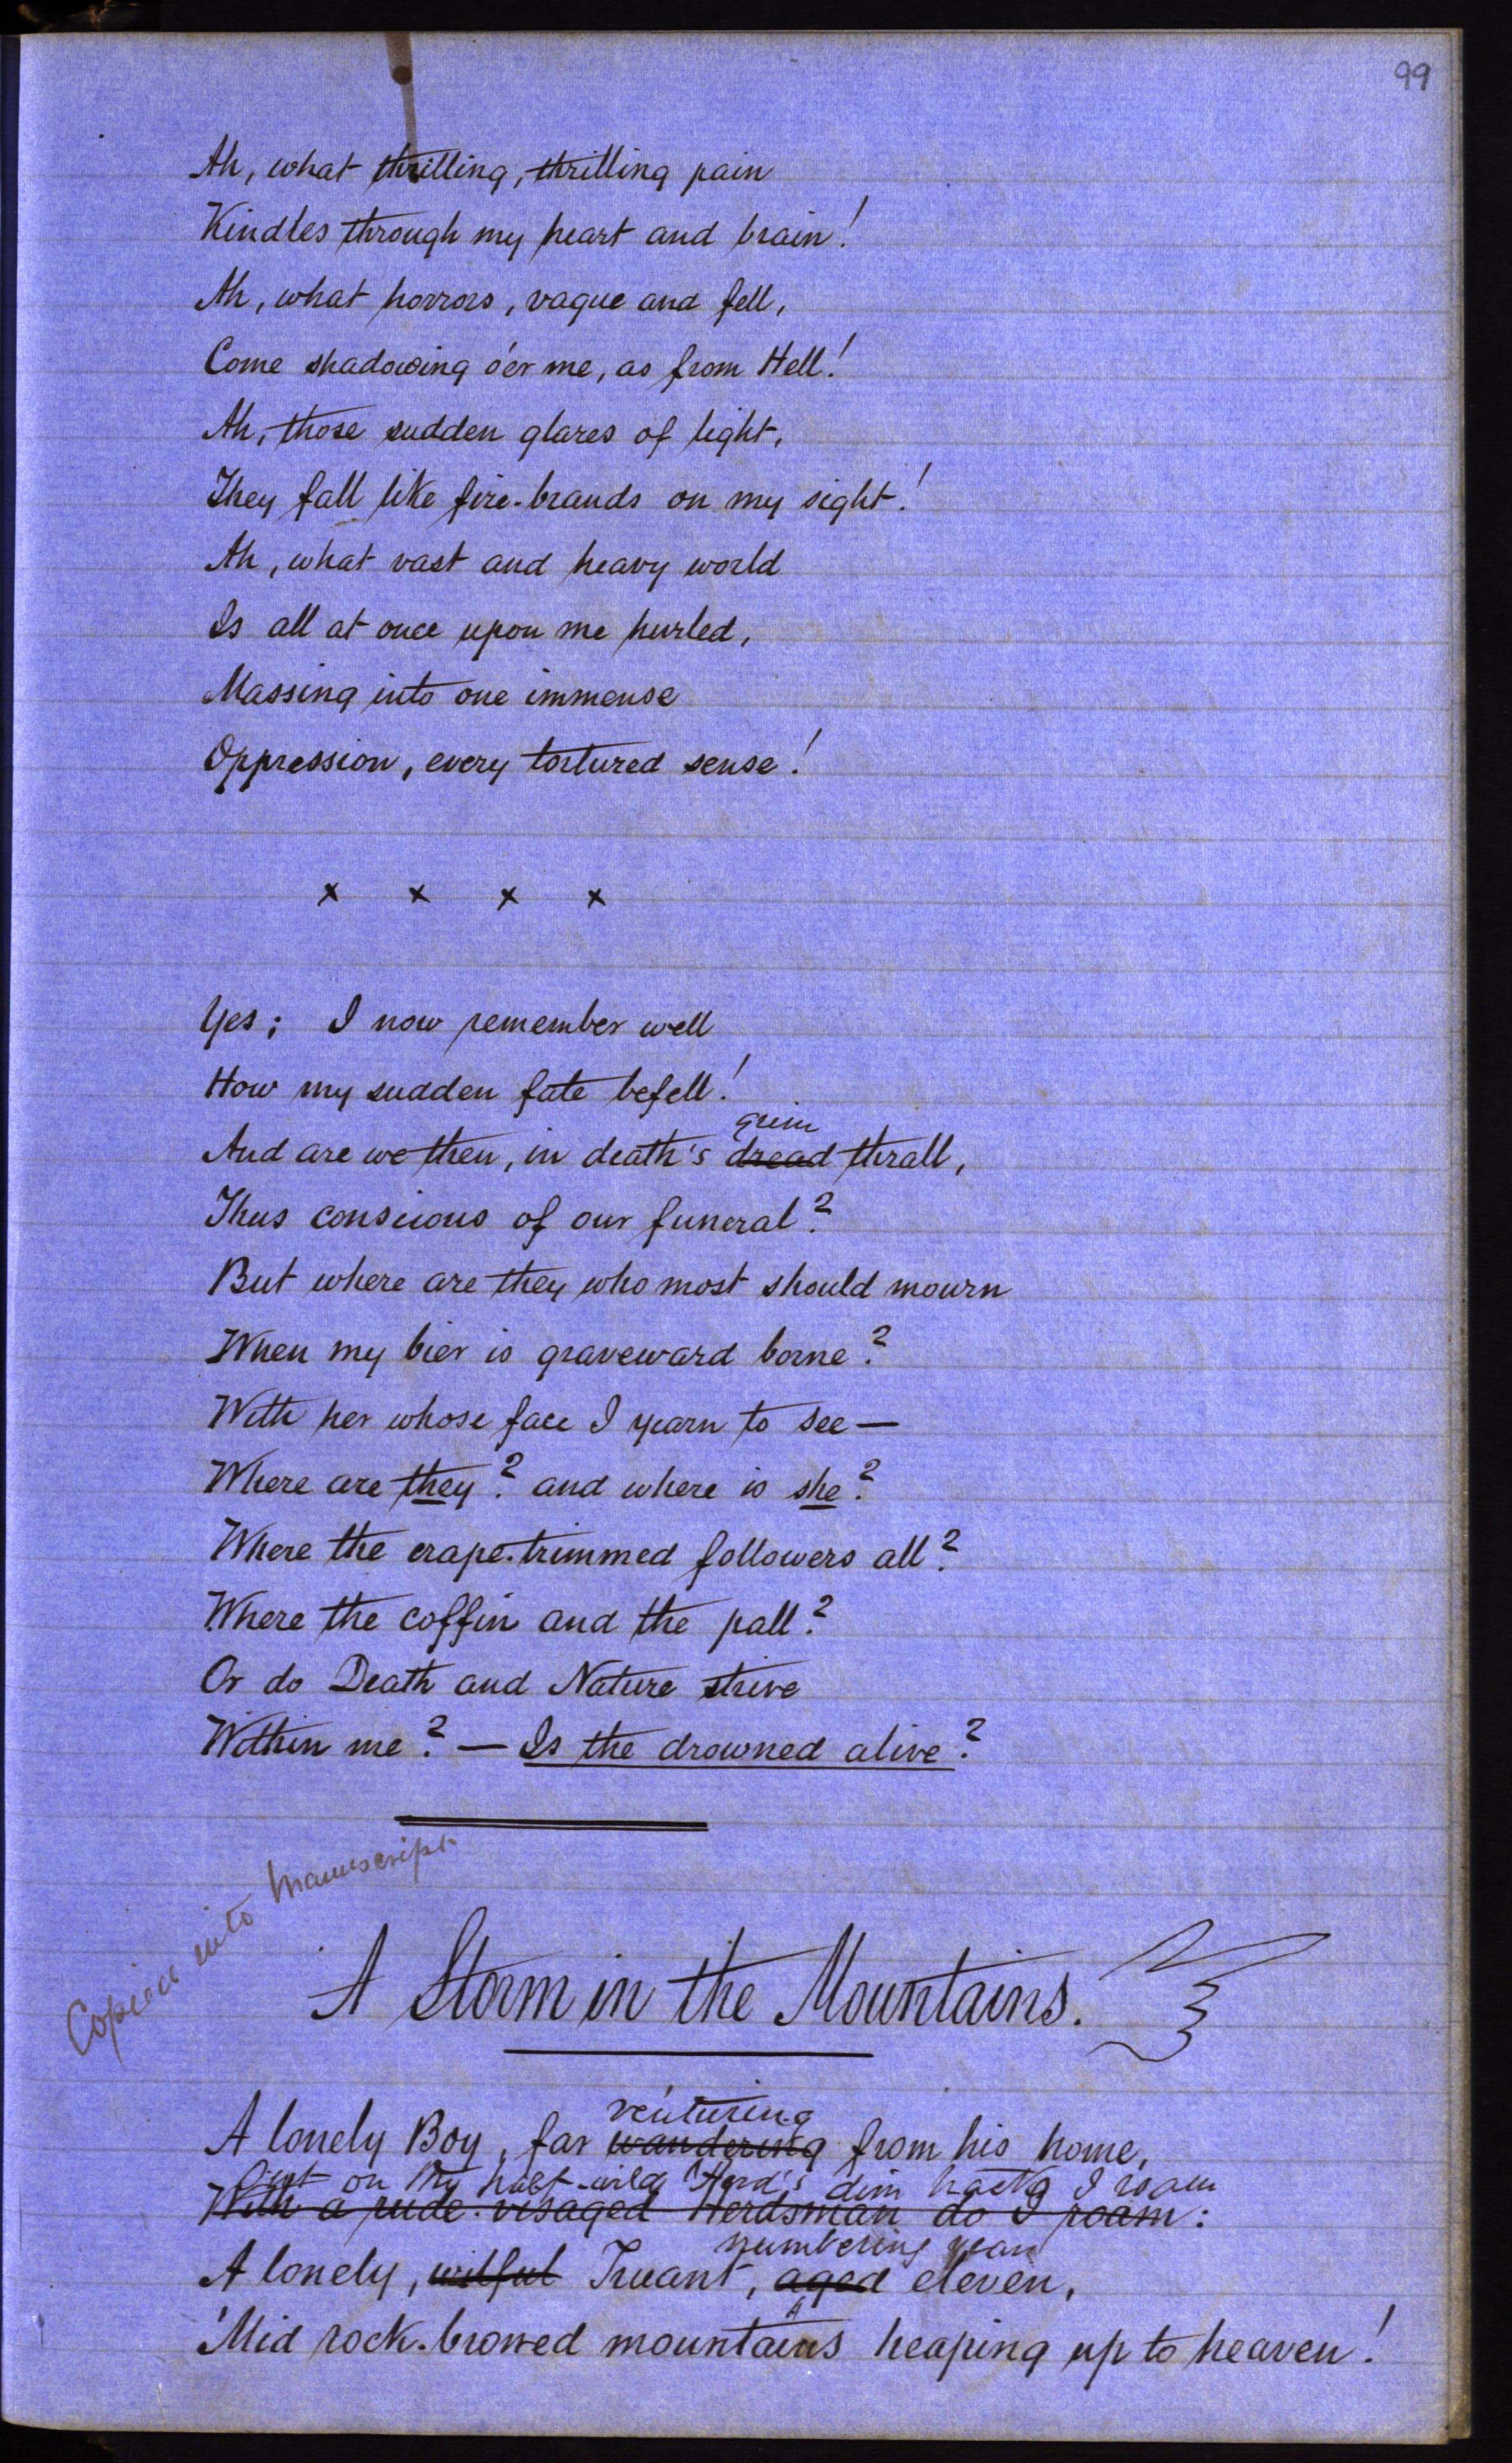 99
Ah, what thrilling, thrilling pain
Kindles through my heart and brain!
Ah, what horrors, vague and fell,
Come shadowing o'er me, as from Hell!
Ah, those sudden glares of light,
They fall like fire-brands on my sight!
Ah, what vast and heavy world
Is all at once upon me hurled,
Massing into one immense
Oppression, every tortured sense!
x x x x
Yes; I now remember well
How my sudden fate befell!
grim
And are we then, in death's dread thrall,
Thus conscious of our funeral?
But where are they who most should mourn
When my bier is graveward borne?
With her whose face I yearn to see—
Where are they? and where is she?
Where the crape-trimmed followers all?
Where the coffin and the pall?
Or do Death and Nature strive
Within me? — Is the drowned alive?
Copied into Manuscript
A Storm in the Mountains.
venturing
A lonely Boy, far wandering from his home,
on my half-wild Herd's dim I roam
With a rude-visaged Herdsman do I roam:
numbering years
A lonely, wilful Truant, aged eleven,
'Mid rock-browed mountains heaping up to heaven!